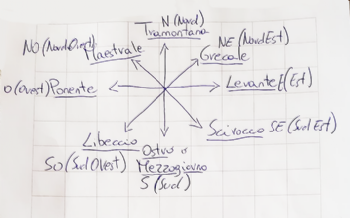 N (Nord)
Tramontana
NO (NordOvest)
Maestrale
NE (NordEst)
Grecale
O (Ovest) Ponente
Levante E (Est)
Libeccio
SO (SudOvest)
Ostro o
Mezzogiorno
S (Sud)
Scirocco SE (SudEst)